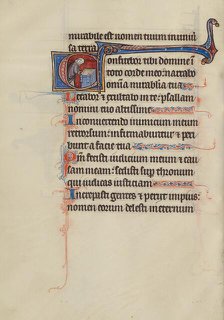 mirabile est nomen tuum in uniuer
sa terra
Confitebor tibi domine i
toto corde meo: narrabo
omia mirabilia tua
Letabor & exultabo in te: psallam
nomini tuo altissime
In conuertendo inimicum meum
retrorsum: infirmabuntur & peri
bunt a facie tua
Qm fecisti iudicium meum & cau
sam meam: sedisti sup thronum
qui iudicas iusticiam
Increpasti gentes & periit impius:
nomen eorum delesti in eternum